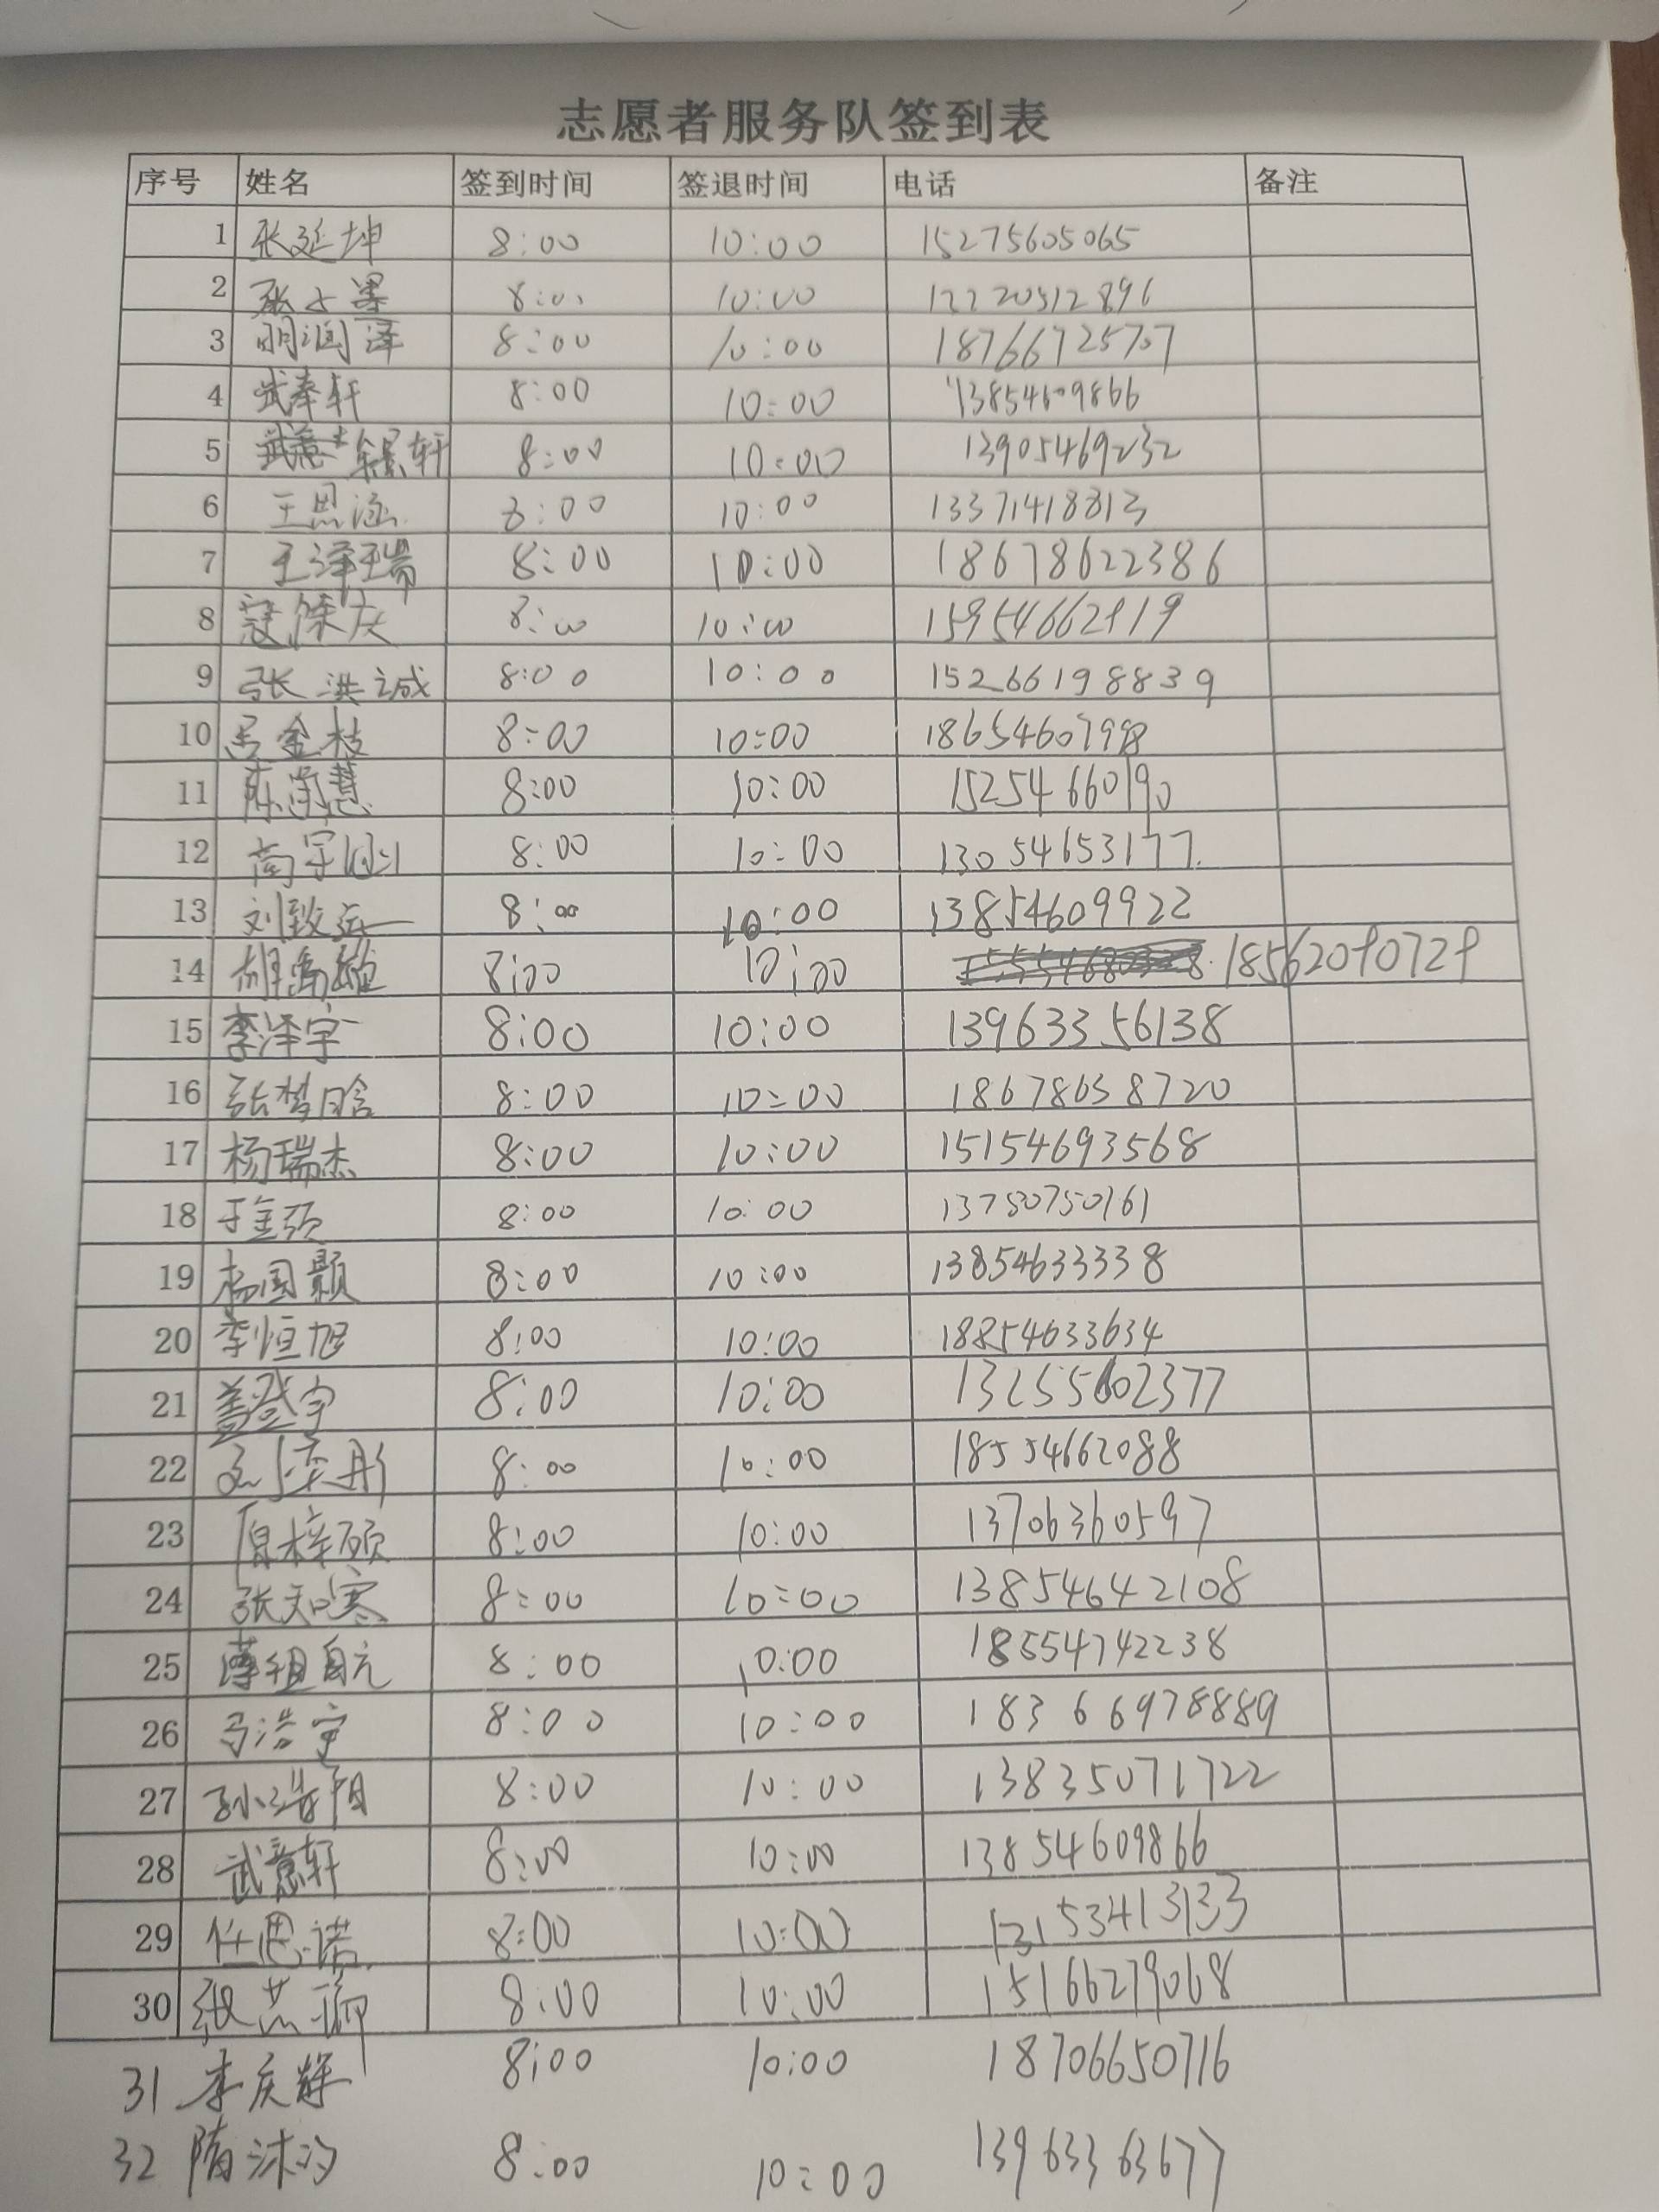 志愿者服务队签到表
序号 姓名 签到时间 签退时间 电话 备注
1 张延坤 8:00 10:00 15275605065
2 张 8:00 10:00
3 明润泽 8:00 10:00 18766725707
4 武奉轩 8:00 10:00 13854609866
5 徐景轩 8:00 10:00 13905469232
6 王思涵 8:00 10:00 13371418813
7 王泽瑞 8:00 10:00 18678622386
8 寇保庆 8:00 10:00 15954662919
9 张洪诚 8:00 10:00 15266198839
10 吴金枝 8:00 10:00 18654607998
11 陈尚慧 8:00 10:00 15254660190
12 高宇 8:00 10:00 13054653177
13 刘致远 8:00 10:00 13854609922
14 胡 8:00 10:00 18562090729
15 李泽宇 8:00 10:00 13963356138
16 张梦晗 8:00 10:00 18678658720
17 杨瑞杰 8:00 10:00 15154693568
18 于金 8:00 10:00 13780750161
19 杨国颢 8:00 10:00 13854633338
20 李恒旭 8:00 10:00 18854633634
21 盖盛宇 8:00 10:00 13255602377
22 刘奕彤 8:00 10:00 18554662088
23 原梓硕 8:00 10:00 13706360597
24 张知寒 8:00 10:00 13854642108
25 薄祖自元 8:00 10:00 18554742238
26 马浩宇 8:00 10:00 18366978889
27 孙浩翔 8:00 10:00 13835071722
28 武意轩 8:00 10:00 13854609866
29 任思诺 8:00 10:00 13153413133
30 张芯聊 8:00 10:00 15166279068
31 李庆辉 8:00 10:00 18706650716
32 隋沐汐 8:00 10:00 13963363677